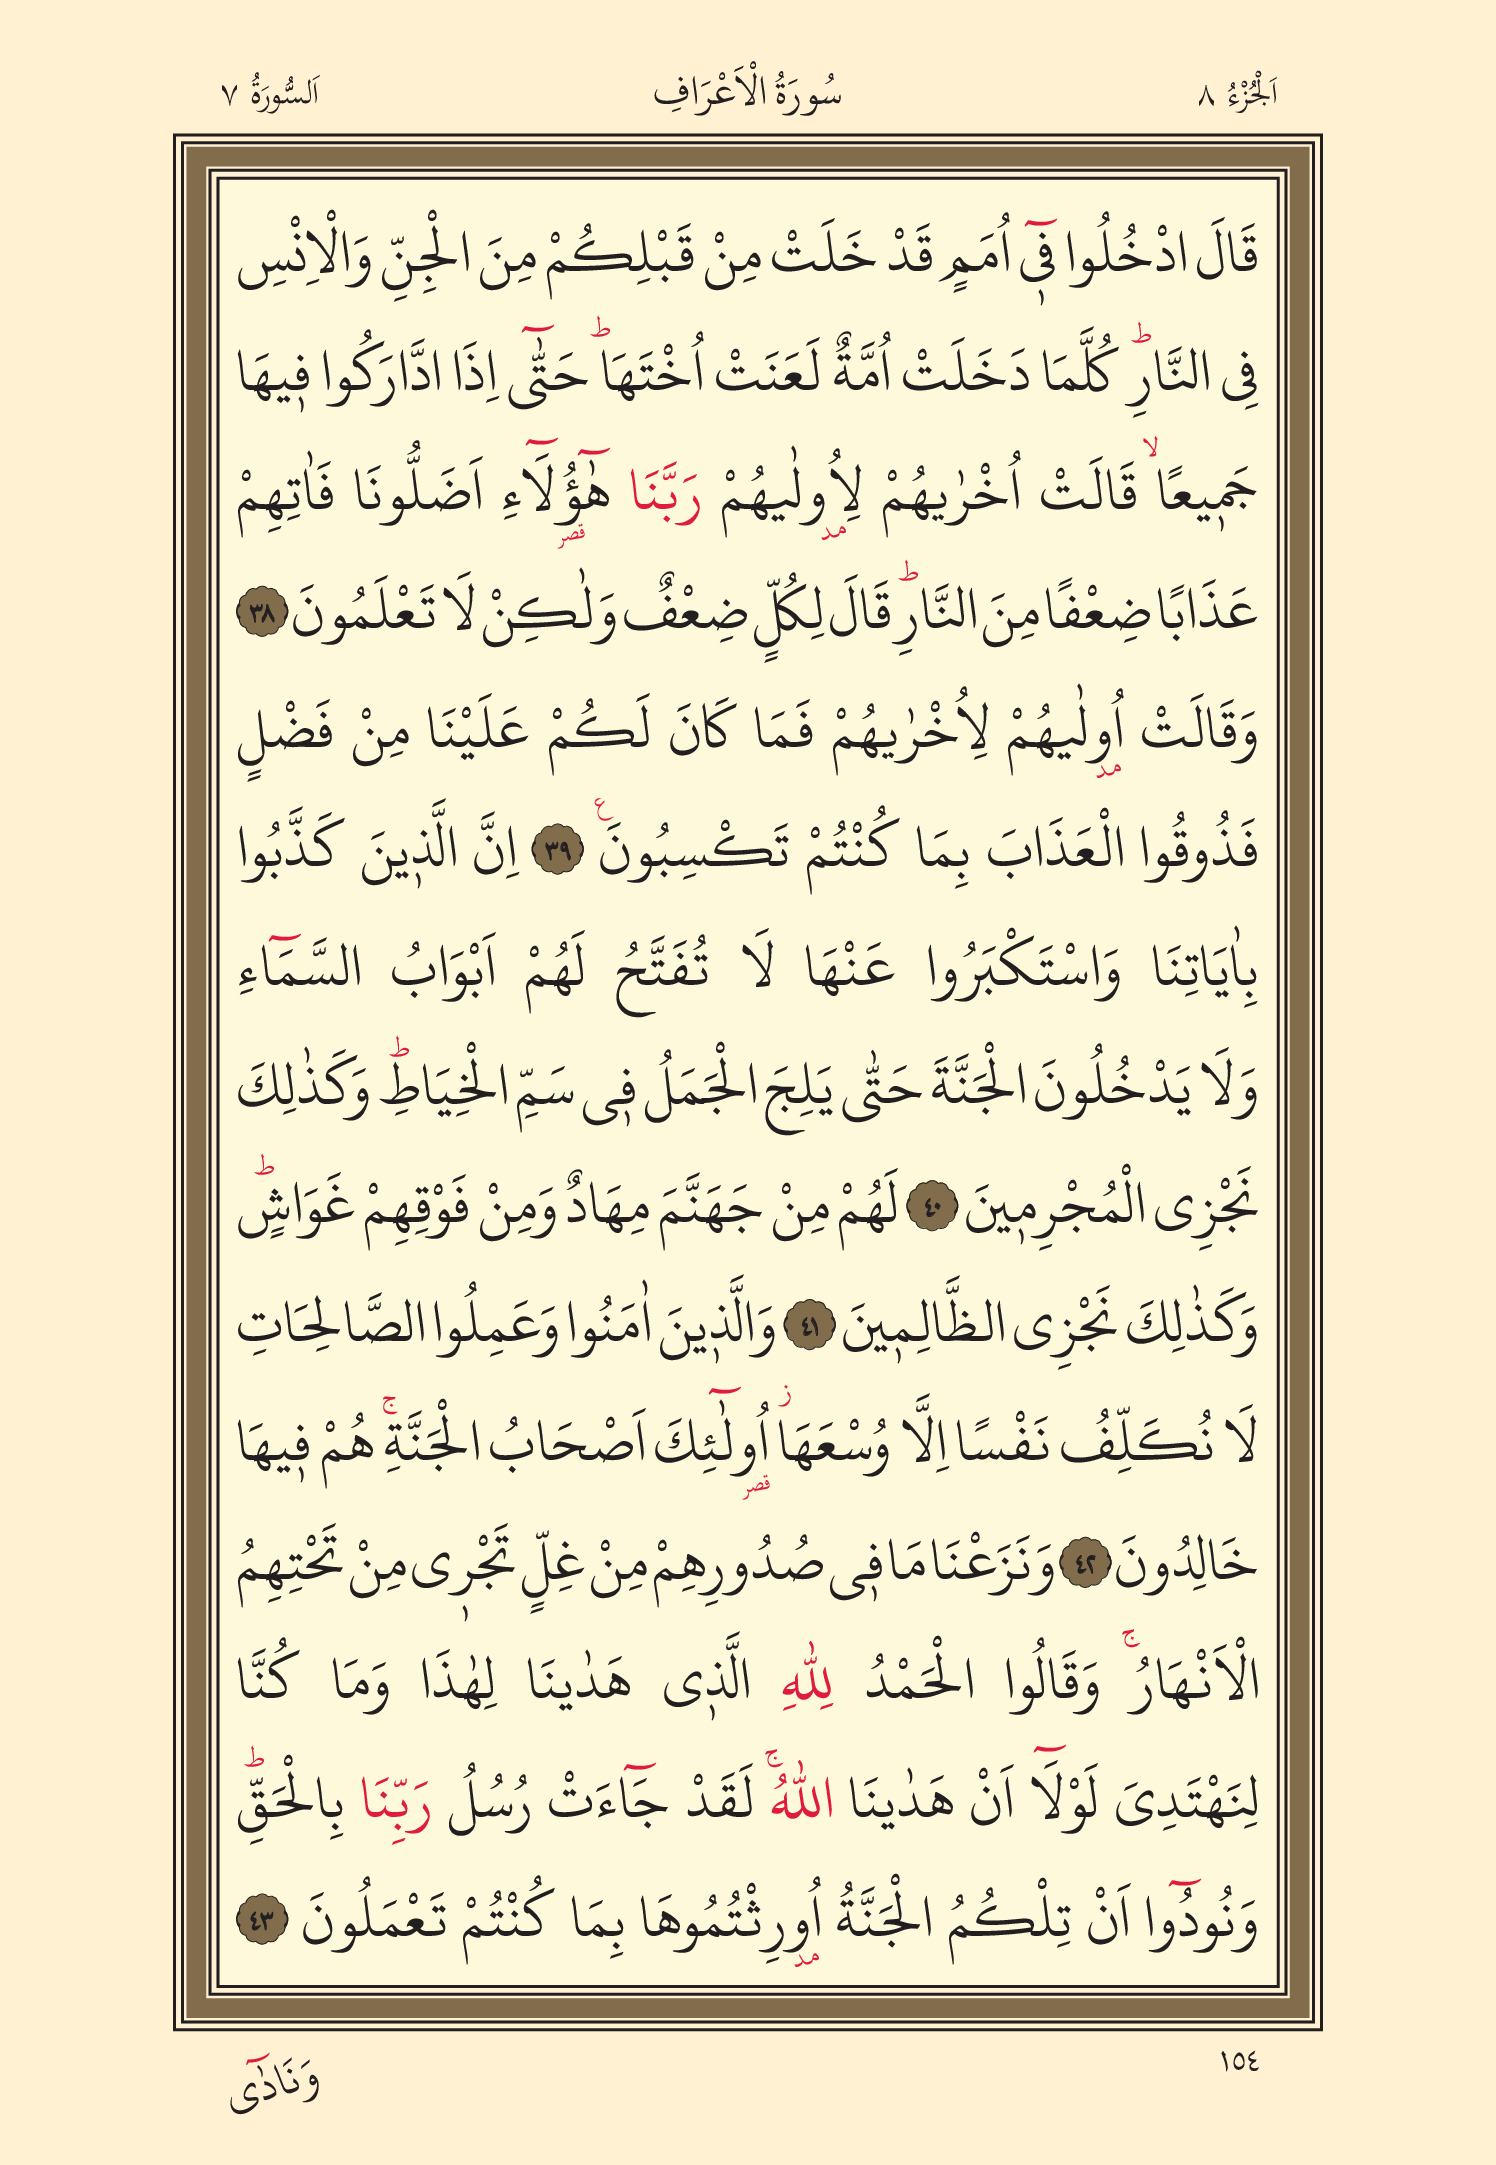 اَلْجُزْءُ ٨ سُورَةُ الْاَعْرَافِ اَلسُّورَةُ ٧
قَالَ ادْخُلُوا فٖٓي اُمَمٍ قَدْ خَلَتْ مِنْ قَبْلِكُمْ مِنَ الْجِنِّ وَالْاِنْسِ
فِي النَّارِؕ كُلَّمَا دَخَلَتْ اُمَّةٌ لَعَنَتْ اُخْتَهَاؕ حَتّٰٓى اِذَا ادَّارَكُوا فٖيهَا
جَمٖيعًاۙ قَالَتْ اُخْرٰيهُمْ لِاُو۫لٰيهُمْ رَبَّنَا هٰٓؤُ۬لَٓاءِ اَضَلُّونَا فَاٰتِهِمْ
عَذَابًا ضِعْفًا مِنَ النَّارِؕ قَالَ لِكُلٍّ ضِعْفٌ وَلٰكِنْ لَا تَعْلَمُونَ ٣٨
وَقَالَتْ اُو۫لٰيهُمْ لِاُخْرٰيهُمْ فَمَا كَانَ لَكُمْ عَلَيْنَا مِنْ فَضْلٍ
فَذُوقُوا الْعَذَابَ بِمَا كُنْتُمْ تَكْسِبُونَࣖ ٣٩ اِنَّ الَّذٖينَ كَذَّبُوا
بِاٰيَاتِنَا وَاسْتَكْبَرُوا عَنْهَا لَا تُفَتَّحُ لَهُمْ اَبْوَابُ السَّمَٓاءِ
وَلَا يَدْخُلُونَ الْجَنَّةَ حَتّٰى يَلِجَ الْجَمَلُ فٖي سَمِّ الْخِيَاطِؕ وَكَذٰلِكَ
نَجْزِي الْمُجْرِمٖينَ ٤٠ لَهُمْ مِنْ جَهَنَّمَ مِهَادٌ وَمِنْ فَوْقِهِمْ غَوَاشٍؕ
وَكَذٰلِكَ نَجْزِي الظَّالِمٖينَ ٤١ وَالَّذٖينَ اٰمَنُوا وَعَمِلُوا الصَّالِحَاتِ
لَا نُكَلِّفُ نَفْسًا اِلَّا وُسْعَهَاؗ اُو۬لٰٓئِكَ اَصْحَابُ الْجَنَّةِۚ هُمْ فٖيهَا
خَالِدُونَ ٤٢ وَنَزَعْنَا مَا فٖي صُدُورِهِمْ مِنْ غِلٍّ تَجْرٖي مِنْ تَحْتِهِمُ
الْاَنْهَارُۚ وَقَالُوا الْحَمْدُ لِلّٰهِ الَّذٖي هَدٰينَا لِهٰذَا وَمَا كُنَّا
لِنَهْتَدِيَ لَوْلَٓا اَنْ هَدٰينَا اللّٰهُۚ لَقَدْ جَٓاءَتْ رُسُلُ رَبِّنَا بِالْحَقِّؕ
وَنُودُٓوا اَنْ تِلْكُمُ الْجَنَّةُ اُو۫رِثْتُمُوهَا بِمَا كُنْتُمْ تَعْمَلُونَ ٤٣
١٥٤ وَنَادٰٓى